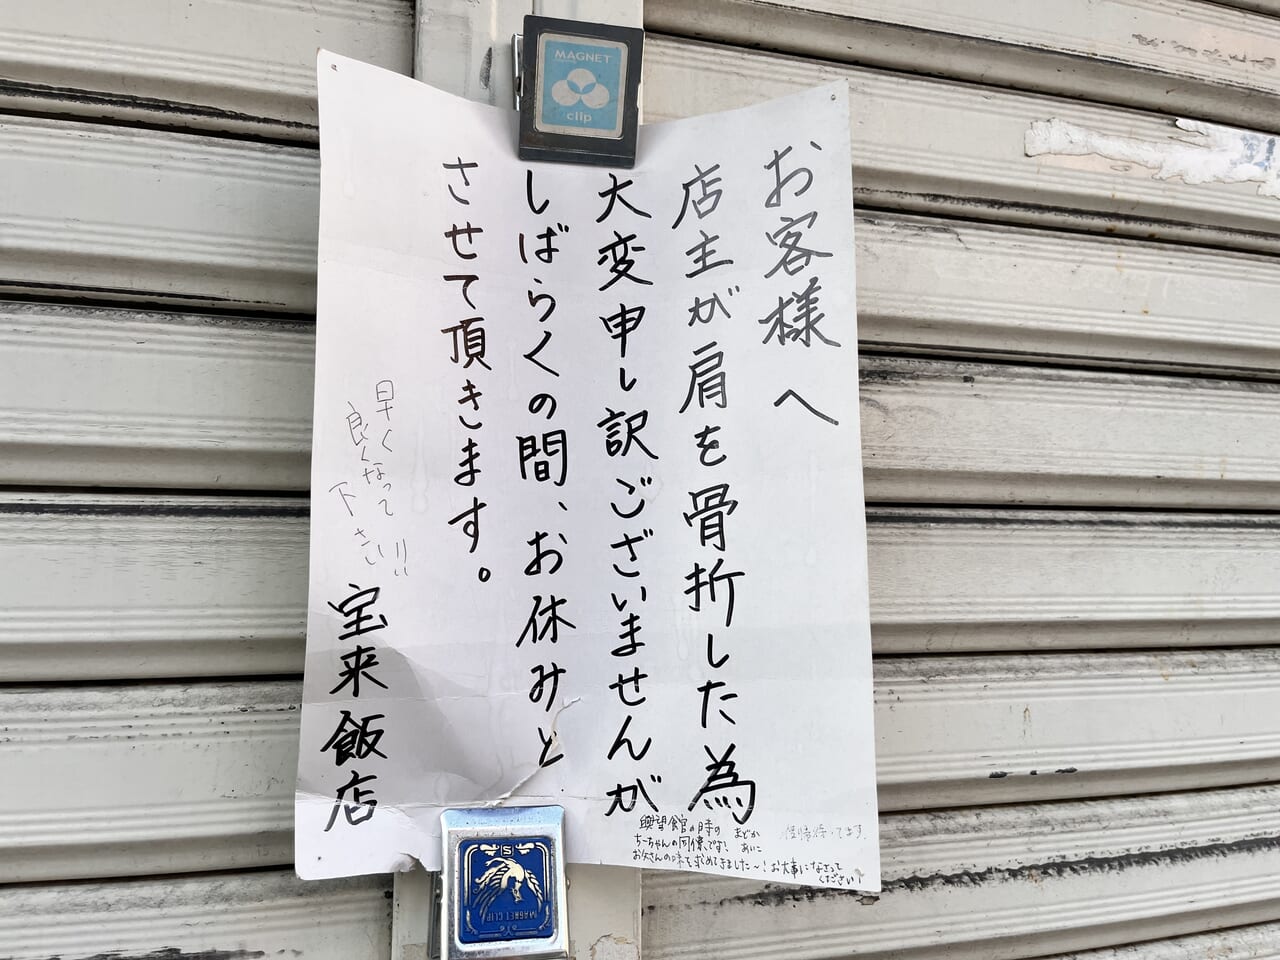 お客様へ
店主が肩を骨折した為
大変申し訳ございませんが
しばらくの間、お休みと
させて頂きます。
宝来飯店
早くなって
良くなって
下さい
MAGNET
clip
興望館の時の まどか
ちーちゃんの同僚です! あいこ
お父さんの味を求めてきました〜!お大事になさって
ください!
復帰待ってます。
S
MAGNET CLIP